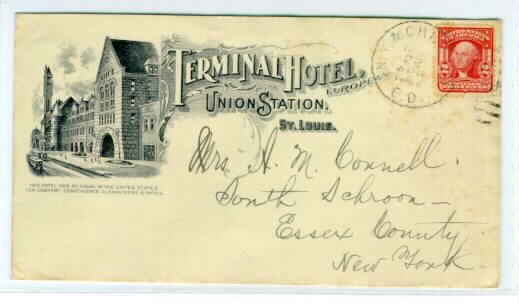 TERMINAL HOTEL,
EUROPEAN
UNION STATION.
ST. LOUIS.
THIS HOTEL HAS NO EQUAL IN THE UNITED STATES
FOR COMFORT CONVENIENCE CLEANLINESS & PRICE
E.D.
2 2
Mrs A. M. Connell.
South Schroon—
Essex County
New York